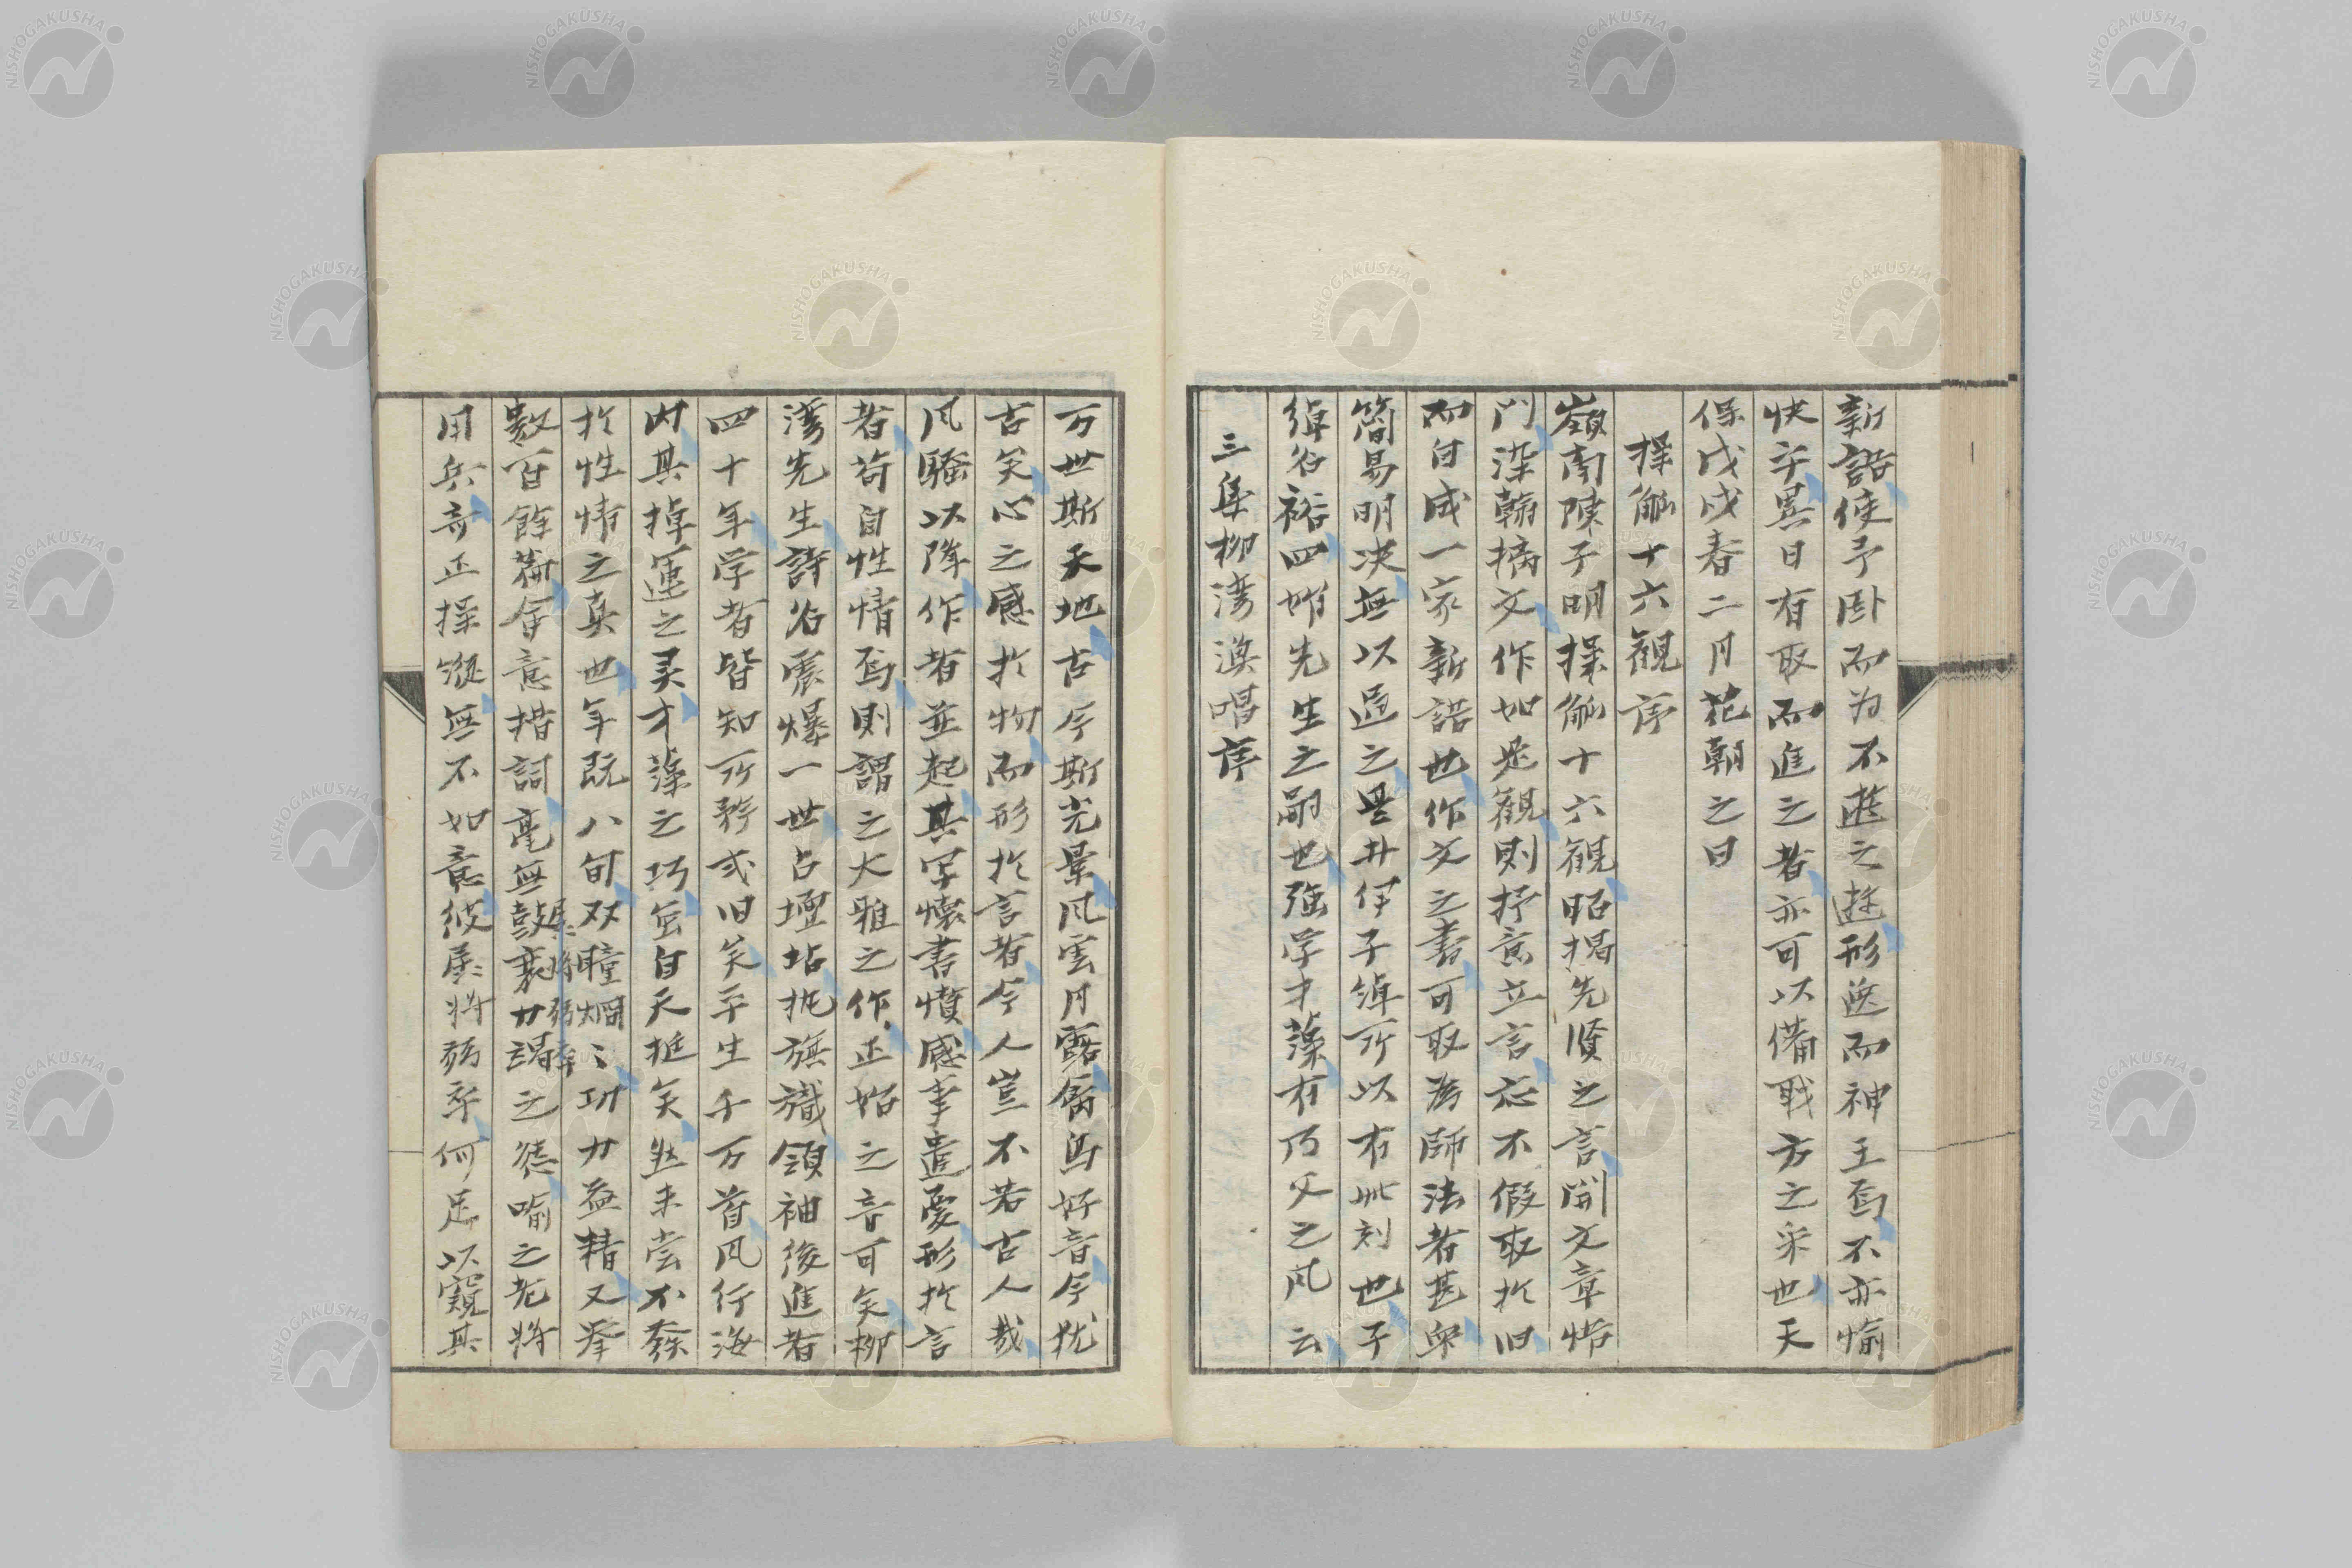 新語使予臥而为不遊之遊形逸而神王焉不亦愉
快乎異日有取而進之者亦可以備戢方之采也天
保戊戌春二月花朝之日
操觚十六観序
嶺南陳子明操觚十六観昭揭先賢之言開文章悟
門染翰摛文作如是観則抒意立言応不假取於旧
而自成一家新語也作文之書可取為師法者甚衆
簡易明决無以過之是井伊子綽所以有此刻也子
綽名裕四明先生之嗣也强学才藻有乃父之风云
三集柳湾漁唱序
万世斯天地古今斯光景风雲月露禽鳥好音今犹
古矣心之感於物而形於言者今人豈不若古人哉
风騒以降作者並起其写懐書憤感事遣憂形於言
者苟自性情焉則謂之大雅之作正始之音可矣柳
湾先生詩名震爆一世占壇坫执旗識領袖後進者
四十年学者皆知所矜式旧矣平生千万首风行海
内其掉運之灵才藻之巧蓋自天挺矣然未尝不発
於性情之真也年既八旬双瞳烱々功力益精又挙
数百餘篇命意措詞毫無鼓衰力竭之態喻之老将
孱将弱卒
用兵奇正操縦無不如意彼孱将弱卒何足以窺其
NISHOGAKUSHA